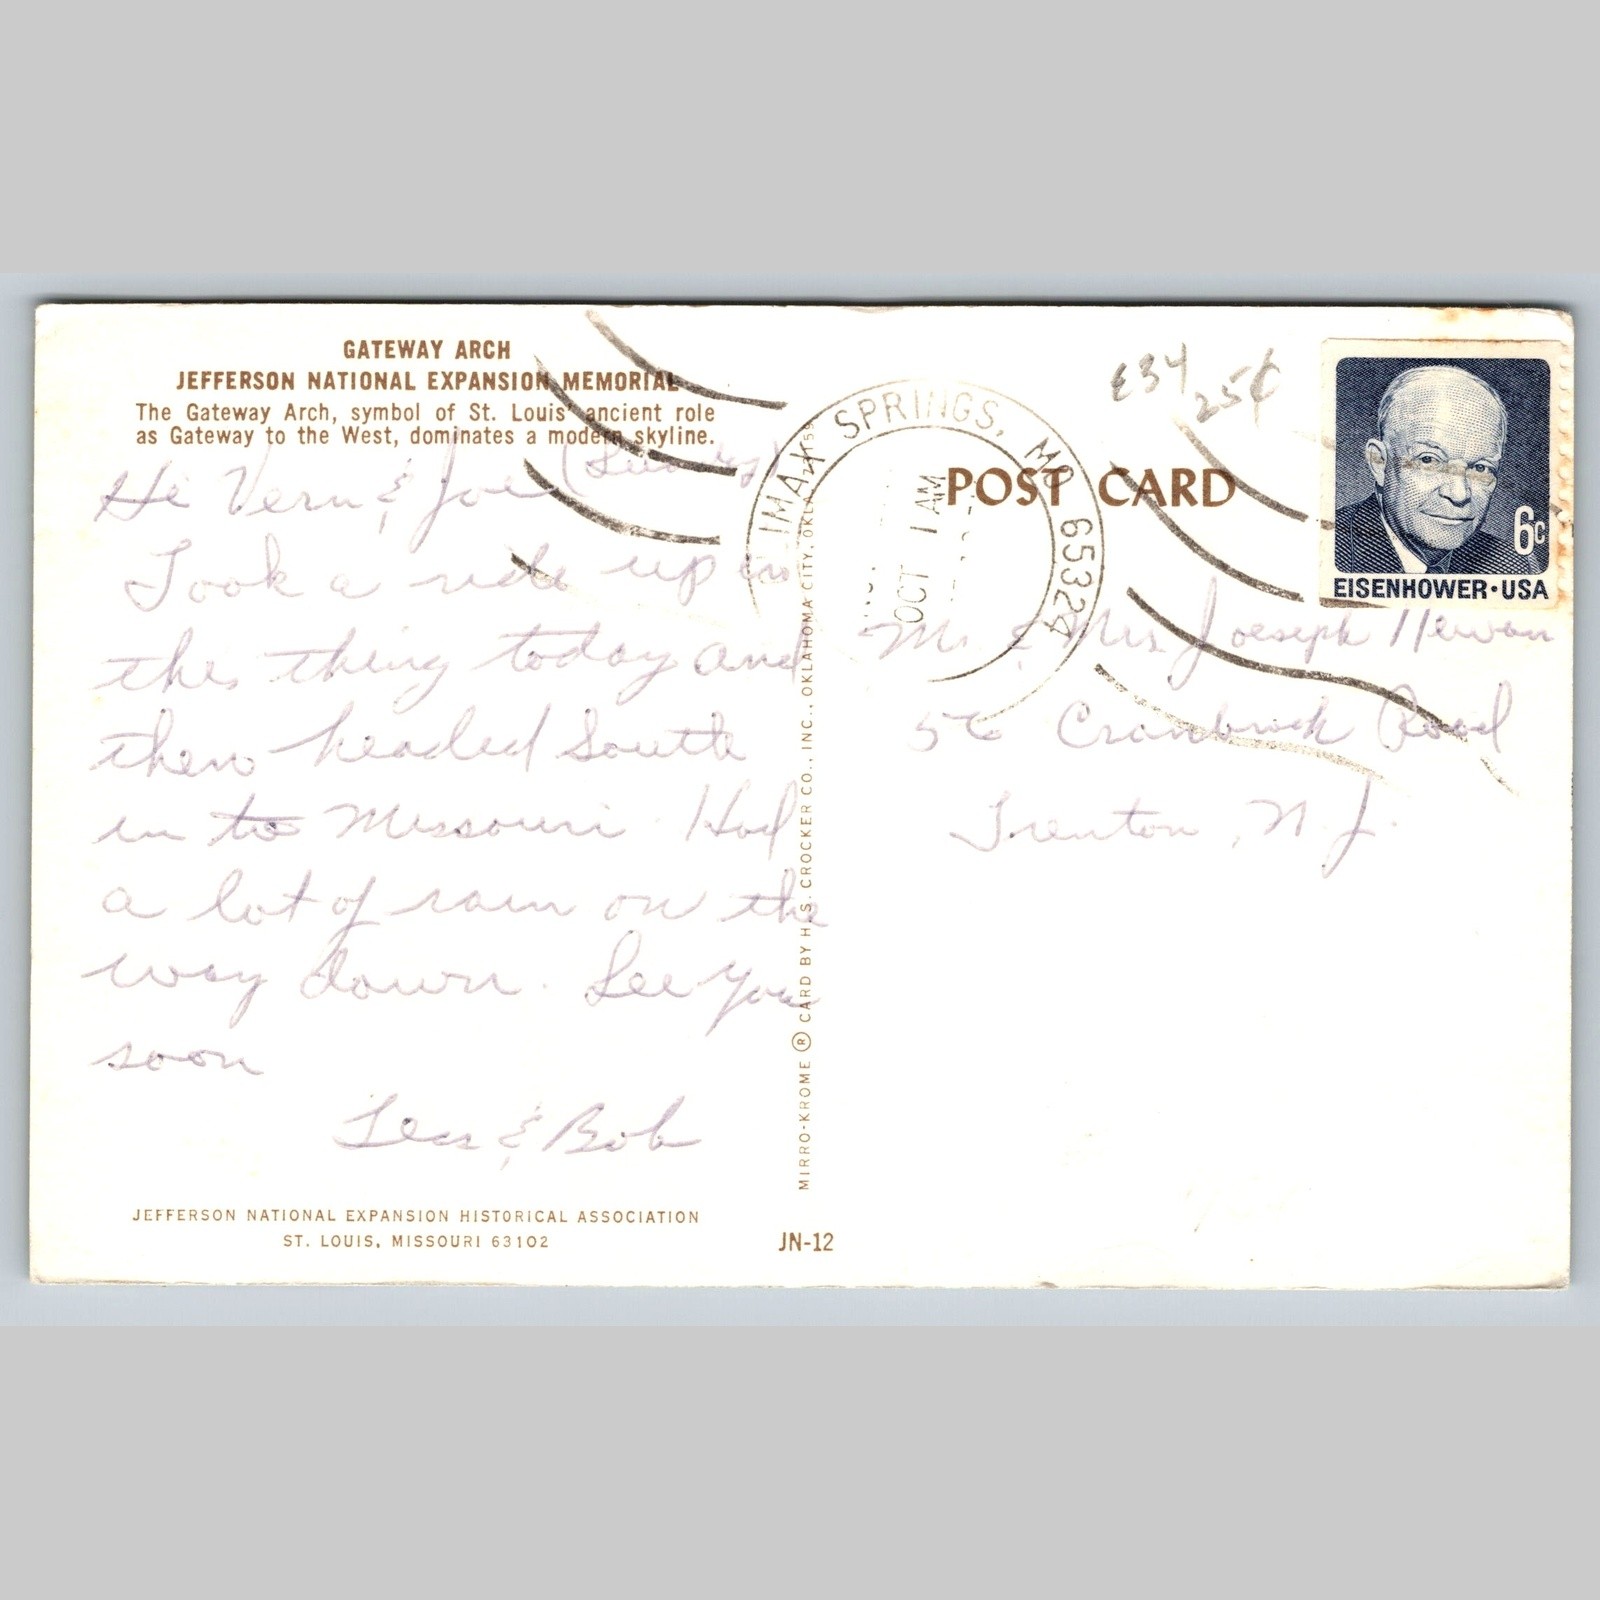 GATEWAY ARCH
JEFFERSON NATIONAL EXPANSION MEMORIAL
The Gateway Arch, symbol of St. Louis' ancient role
as Gateway to the West, dominates a modern skyline.
Hi Vern & Joe
Took a ride up in
this thing today and
then headed South
in to Missouri. Had
a lot of rain on the
way down. See you
soon
& Bob
JEFFERSON NATIONAL EXPANSION HISTORICAL ASSOCIATION
ST. LOUIS, MISSOURI 63102
MIRRO-KROME ® CARD BY H.S. CROCKER CO., INC., OKLAHOMA CITY, OKLA.
JN-12
IMAX SPRINGS, MO 65324
OCT 1 AM
POST CARD
E34
25¢
6c
EISENHOWER • USA
Mr & Mrs Joeseph
56 Cranbrook Road
Trenton, N.J.